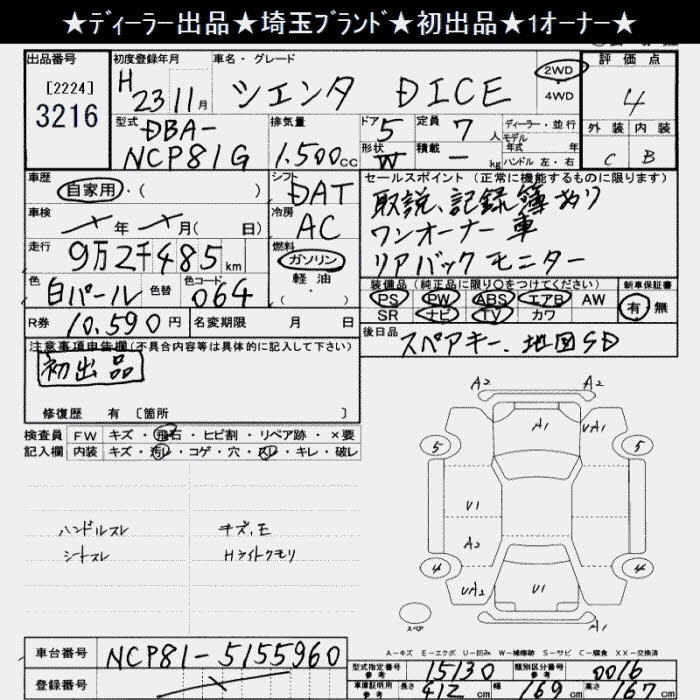 ★ディーラー出品★埼玉ブランド★初出品★1オーナー★
出品番号
[2224]
3216
初度登録年月
H 23 11月
車名・グレード
シエンタ DICE
2WD
・
4WD
評価点
4
外装 内装
C B
型式
DBA-
NCP81G
排気量
1.500cc
ドア 5
定員 7人
形状 W
積載 - kg
ディーラー・並行
モデル
年式 年
ハンドル 左・右
車歴
自家用・( )
シフト
DAT
車検
年 月( 日)
冷房
AC
走行
9万2千485km
燃料
ガソリン
軽油
( ・ )
色
白パール
色替
色コード
064
R券
10.590円
名変期限 月 日
セールスポイント(正常に機能するものに限ります)
取説、記録簿あり
ワンオーナー車
リアバックモニター
装備品(純正品に限り○をつけてください)
PS PW ABS エアB AW
SR ナビ TV カワ
新車保証書
有 無
後日品
スペアキー、地図SD
注意事項申告欄(不具合内容等は具体的に記入して下さい)
初出品
修復歴 有 〔箇所 〕
検査員 FW キズ・飛石・ヒビ割・リペア跡・×要
記入欄 内装 キズ・汚レ・コゲ・穴・スレ・キレ・破レ
ハンドルスレ キズ、モ
シートスレ Hライトクモリ
A2 A2
A1 UA1
5 5
U1
A2
4 4
UA2 U1
スペア
A-キズ E-エクボ U-凹み W-補修跡 S-サビ C-腐食 XX-交換済
車台番号
NCP81-5155960
登録番号
型式指定番号
参考
15130
類別区分番号
参考
0016
車庫証明用
参考
長さ 412cm
幅 169cm
高さ 167cm